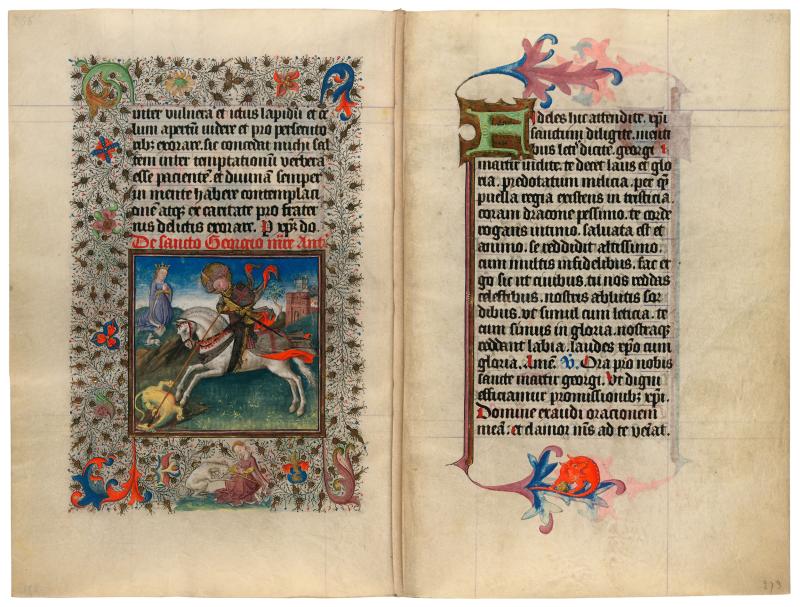 inter vulnera et ictus lapidū et ce
lum apertū videre et pro persecuto
ribꝫ exorare. sic concedat michi sal
tem inter temptationū verbera
esse pacientē et divinā semper
in mente habere contemplaci
onē atqꝫ ex caritate pro frater
nis delictis exorare. P xp̄z do.
De sancto Georgio mr̄e Ant̄
Fideles hic attendite. xp̄i
sanctum diligite. menti
bus leti dicite. georgi
martir inclite. te decet laus et glo
ria. predotatum milicia. per qm̄
puella regia existens in tristicia.
coram dracone pessimo. te corde
rogans intimo. salvata est et
animo. se reddidit altissimo.
cum multis infidelibus. fac er
go sic nr̄ civibus. tu nos reddas
celestibus. nostris ablutis sor
dibus. vt simul cum leticia. te
cum simus in gloria. nostraqꝫ
reddant labia. laudes xp̄o cum
gloria. Amē. V̄. Ora pro nobis
sancte martir georgi. Vt digni
efficiamur promissionibꝫ xp̄i.
Domine exaudi orationem
meā. et clamor m̄s ad te veniat.
273